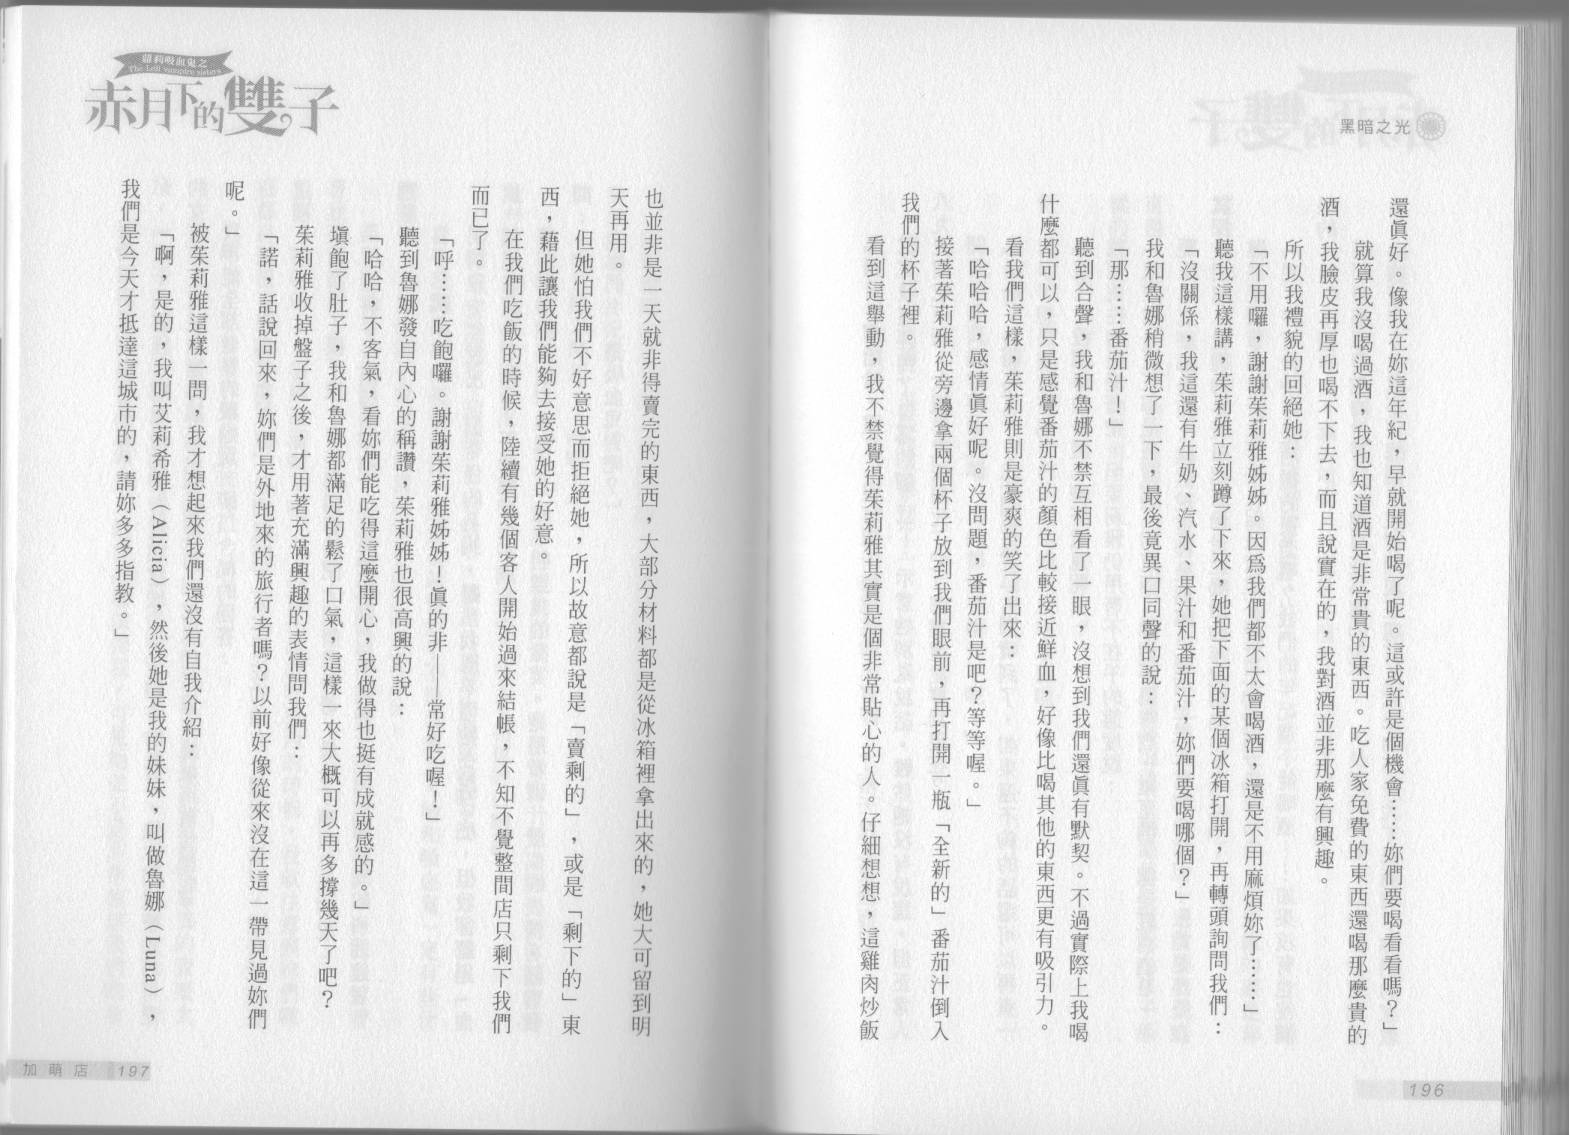 黑暗之光
還真好。像我在妳這年紀，早就開始喝了呢。這或許是個機會……妳們要喝看看嗎？」
就算我沒喝過酒，我也知道酒是非常貴的東西。吃人家免費的東西還喝那麼貴的
酒，我臉皮再厚也喝不下去，而且說實在的，我對酒並非那麼有興趣。
所以我禮貌的回絕她：
「不用囉，謝謝茱莉雅姊姊。因為我們都不太會喝酒，還是不用麻煩妳了……」
聽我這樣講，茱莉雅立刻蹲了下來，她把下面的某個冰箱打開，再轉頭詢問我們：
「沒關係，我這還有牛奶、汽水、果汁和番茄汁，妳們要喝哪個？」
我和魯娜稍微想了一下，最後竟異口同聲的說：
「那……番茄汁！」
聽到合聲，我和魯娜不禁互相看了一眼，沒想到我們還真有默契。不過實際上我喝
什麼都可以，只是感覺番茄汁的顏色比較接近鮮血，好像比喝其他的東西更有吸引力。
看我們這樣，茱莉雅則是豪爽的笑了出來：
「哈哈哈，感情真好呢。沒問題，番茄汁是吧？等等喔。」
接著茱莉雅從旁邊拿兩個杯子放到我們眼前，再打開一瓶「全新的」番茄汁倒入
我們的杯子裡。
看到這舉動，我不禁覺得茱莉雅其實是個非常貼心的人。仔細想想，這雞肉炒飯
196
蘿莉吸血鬼之
The Loli vampire sisters
赤月下的雙子
也並非是一天就非得賣完的東西，大部分材料都是從冰箱裡拿出來的，她大可留到明
天再用。
但她怕我們不好意思而拒絕她，所以故意都說是「賣剩的」，或是「剩下的」東
西，藉此讓我們能夠去接受她的好意。
在我們吃飯的時候，陸續有幾個客人開始過來結帳，不知不覺整間店只剩下我們
而已了。
「呼……吃飽囉。謝謝茱莉雅姊姊！真的非——常好吃喔！」
聽到魯娜發自內心的稱讚，茱莉雅也很高興的說：
「哈哈，不客氣，看妳們能吃得這麼開心，我做得也挺有成就感的。」
填飽了肚子，我和魯娜都滿足的鬆了口氣，這樣一來大概可以再多撐幾天了吧？
茱莉雅收掉盤子之後，才用著充滿興趣的表情問我們：
「諾，話說回來，妳們是外地來的旅行者嗎？以前好像從來沒在這一帶見過妳們
呢。」
被茱莉雅這樣一問，我才想起來我們還沒有自我介紹：
「啊，是的，我叫艾莉希雅（Alicia），然後她是我的妹妹，叫做魯娜（Luna），
我們是今天才抵達這城市的，請妳多多指教。」
加萌店 197